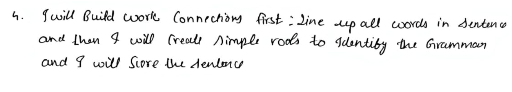 4. I will Build work Connections first : Line up all words in Sentence
and then I will Create simple rools to Identiby the Grammar
and I will Score the sentence